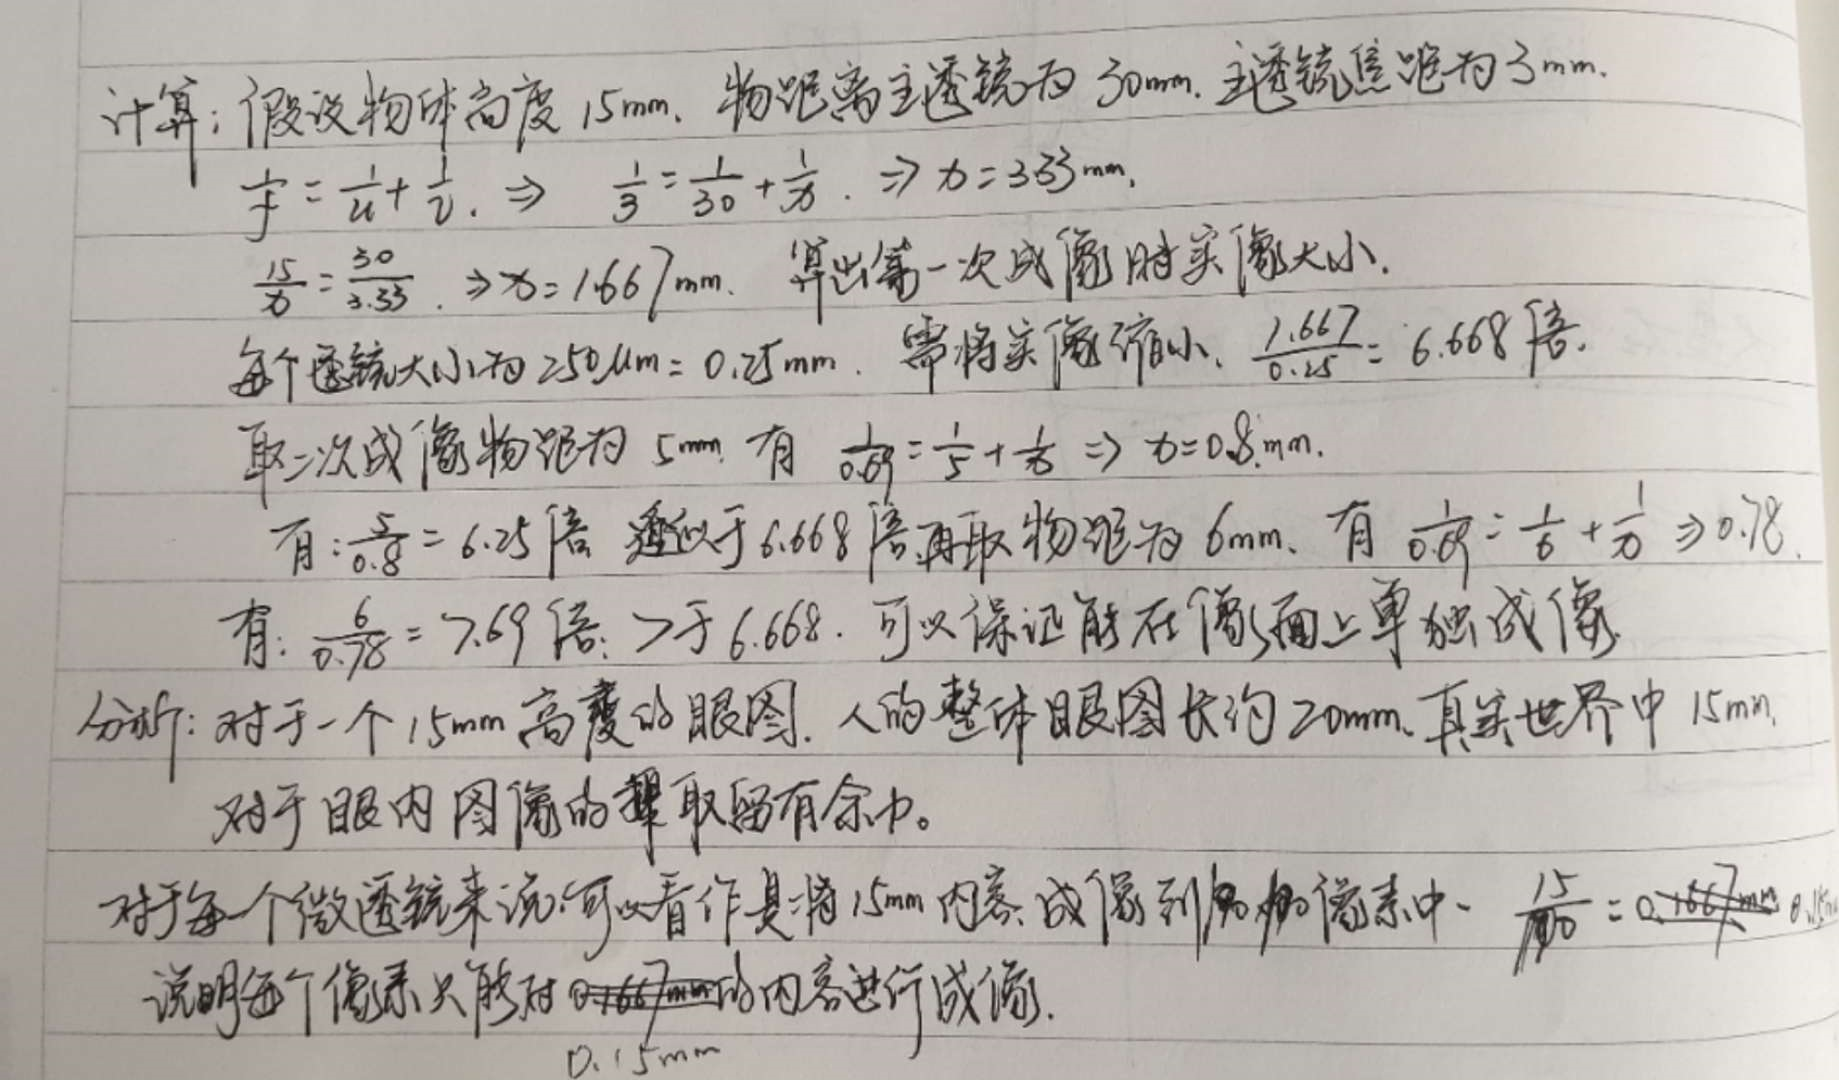 计算：假设物体高度 15mm. 物距离主透镜为 30mm. 主透镜焦距为 3mm.
1/f = 1/u + 1/v. ⇒ 1/3 = 1/30 + 1/x. ⇒ x = 3.33mm.
15/x = 30/3.33. ⇒ x = 1.667mm. 算出第一次成像时实像大小.
每个透镜大小为 250μm = 0.25mm. 需将实像缩小. 1.667/0.25 = 6.668倍.
取二次成像物距为 5mm. 有 1/0.69 = 1/5 + 1/x ⇒ x = 0.8mm.
有: 5/0.8 = 6.25倍 近似于 6.668倍. 再取物距为 6mm. 有 1/0.69 = 1/6 + 1/x ⇒ 0.78.
有: 6/0.78 = 7.69倍. >于 6.668. 可以保证能在像面上单独成像.
分析: 对于一个 15mm 高度的眼图. 人的整体眼图长约 20mm. 真实世界中 15mm.
对于眼内图像的提取留有余力。
对于每一个微透镜来说. 可以看作是将 15mm 内容. 成像到 像素中. 15/100 = 0.1667mm 0.15mm
说明每个像素只能对 0.1667mm 的内容进行成像.
0.15mm